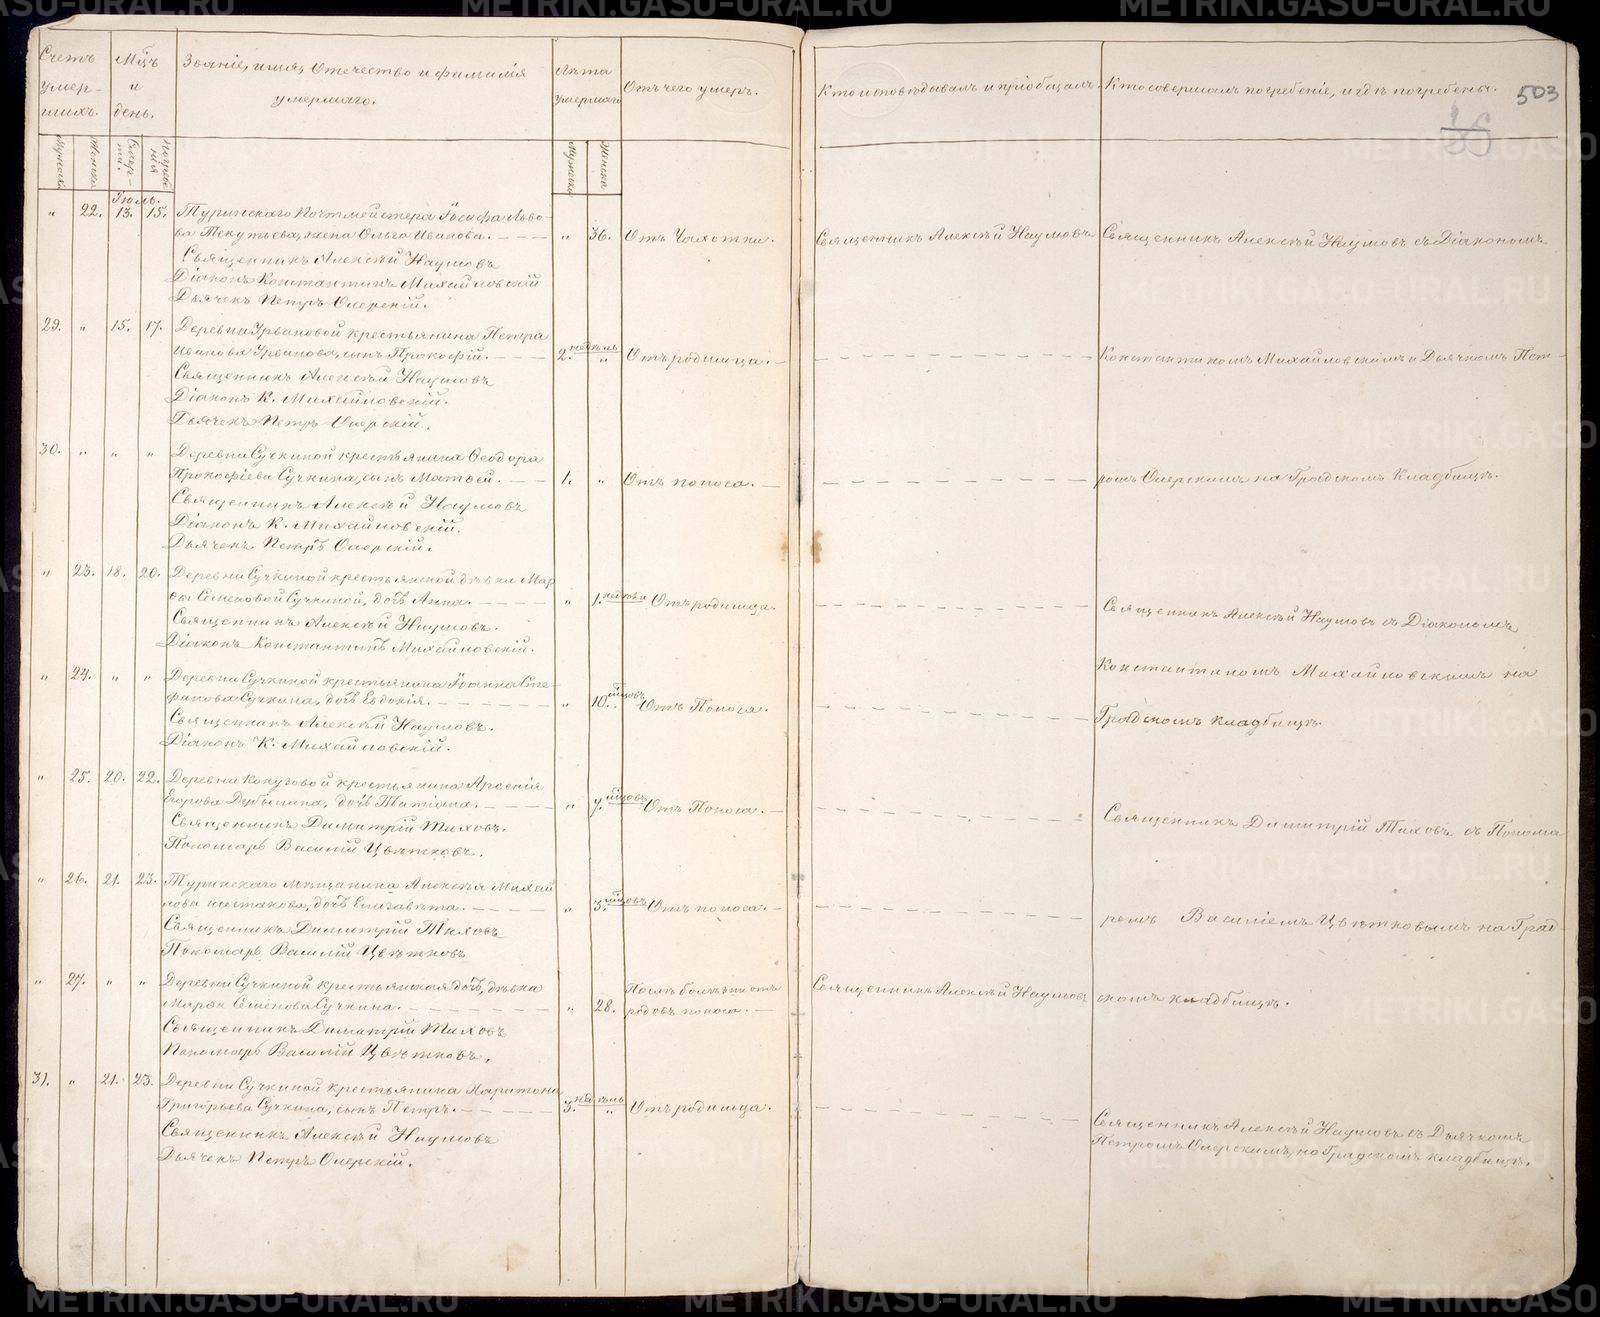 Счетъ умер-шихъ.
Мцъ и день.
Званіе, имя, отечество и фамилія умершаго.
Лѣта умершаго
Отъ чего умеръ.
Кто исповѣдывалъ и пріобщалъ.
Кто совершалъ погребеніе, и гдѣ погребены.
503
Мужеска
Женска
Смер-ти.
Погребе
нія
Мужеска
Женска
Іюль.
" 22. 13. 15. Туринскаго Почтмейстера Іосифа Льво-
ва Текутьева, жена Ольга Иванова. " 36. Отъ Чахотки. Священникъ Алексѣй Наумовъ Священникъ Алексѣй Наумовъ съ Діакономъ
Священникъ Алексѣй Наумовъ
Діаконъ Константинъ Михайловскій
Дьячекъ Петръ Озерскій.
29. " 15. 17. Деревни Урвановой крестьянина Петра
Иванова Урванова, сынъ Прокофій. 2. недѣль " Отъ родимца. Константиномъ Михайловскимъ и Дьячкомъ Пет-
Священникъ Алексѣй Наумовъ
Діаконъ К. Михайловскій.
Дьячекъ Петръ Озерскій.
30. " " " Деревни Сучкиной крестьянина Ѳеодора
Прокофіева Сучкина, сынъ Матѳей. 1. " Отъ поноса. ромъ Озерскимъ на Градскомъ Кладбищѣ.
Священникъ Алексѣй Наумовъ
Діаконъ К. Михайловскій.
Дьячекъ Петръ Озерскій.
" 23. 18. 20. Деревни Сучкиной крестьянской дѣвки Мар
ѳы Семеновой Сучкиной, дочь Анна. " 1. недѣли Отъ родимца. Священникъ Алексѣй Наумовъ съ Діакономъ
Священникъ Алексѣй Наумовъ.
Діаконъ Константинъ Михайловскій.
" 24. " " Деревни Сучкиной крестьянина Іоанна Сте- Константиномъ Михайловскимъ на
фанова Сучкина, дочь Евдокія. " 10. мцовъ Отъ Поноса. Градскомъ кладбищѣ.
Священникъ Алексѣй Наумовъ.
Діаконъ К. Михайловскій.
" 25. 20. 22. Деревни Кокузовой крестьянина Арсенія
Егорова Дербышна, дочь Татіана. " 7. мцовъ Отъ Поноса. Священникъ Димитрій Тиховъ съ Понома
Священникъ Димитрій Тиховъ.
Пономарь Василій Цвѣтковъ.
" 26. 21. 23. Туринскаго мѣщанина Алексѣя Михай
лова Шестакова, дочь Елизавета. " 3. мцовъ Отъ поноса. ремъ Василіемъ Цвѣтковымъ на Град-
Священникъ Димитрій Тиховъ
Пономарь Василій Цвѣтковъ
" 27. " " Деревни Сучкиной крестьянская дочь, дѣвка
Марѳа Семенова Сучкина. " 28. Послѣ болѣзни отъ родовъ поноса. Священникъ Алексѣй Наумовъ скомъ кладбищѣ.
Священникъ Димитрій Тиховъ
Пономарь Василій Цвѣтковъ.
31. " 21. 23. Деревни Сучкиной крестьянина Харитона
Григорьева Сучкина, сынъ Петръ. 3. недѣль " Отъ родимца. Священникъ Алексѣй Наумовъ съ Дьячкомъ
Петромъ Озерскимъ, на Градскомъ кладбищѣ.
Священникъ Алексѣй Наумовъ
Дьячекъ Петръ Озерскій.
METRIKI.GASO-URAL.RU